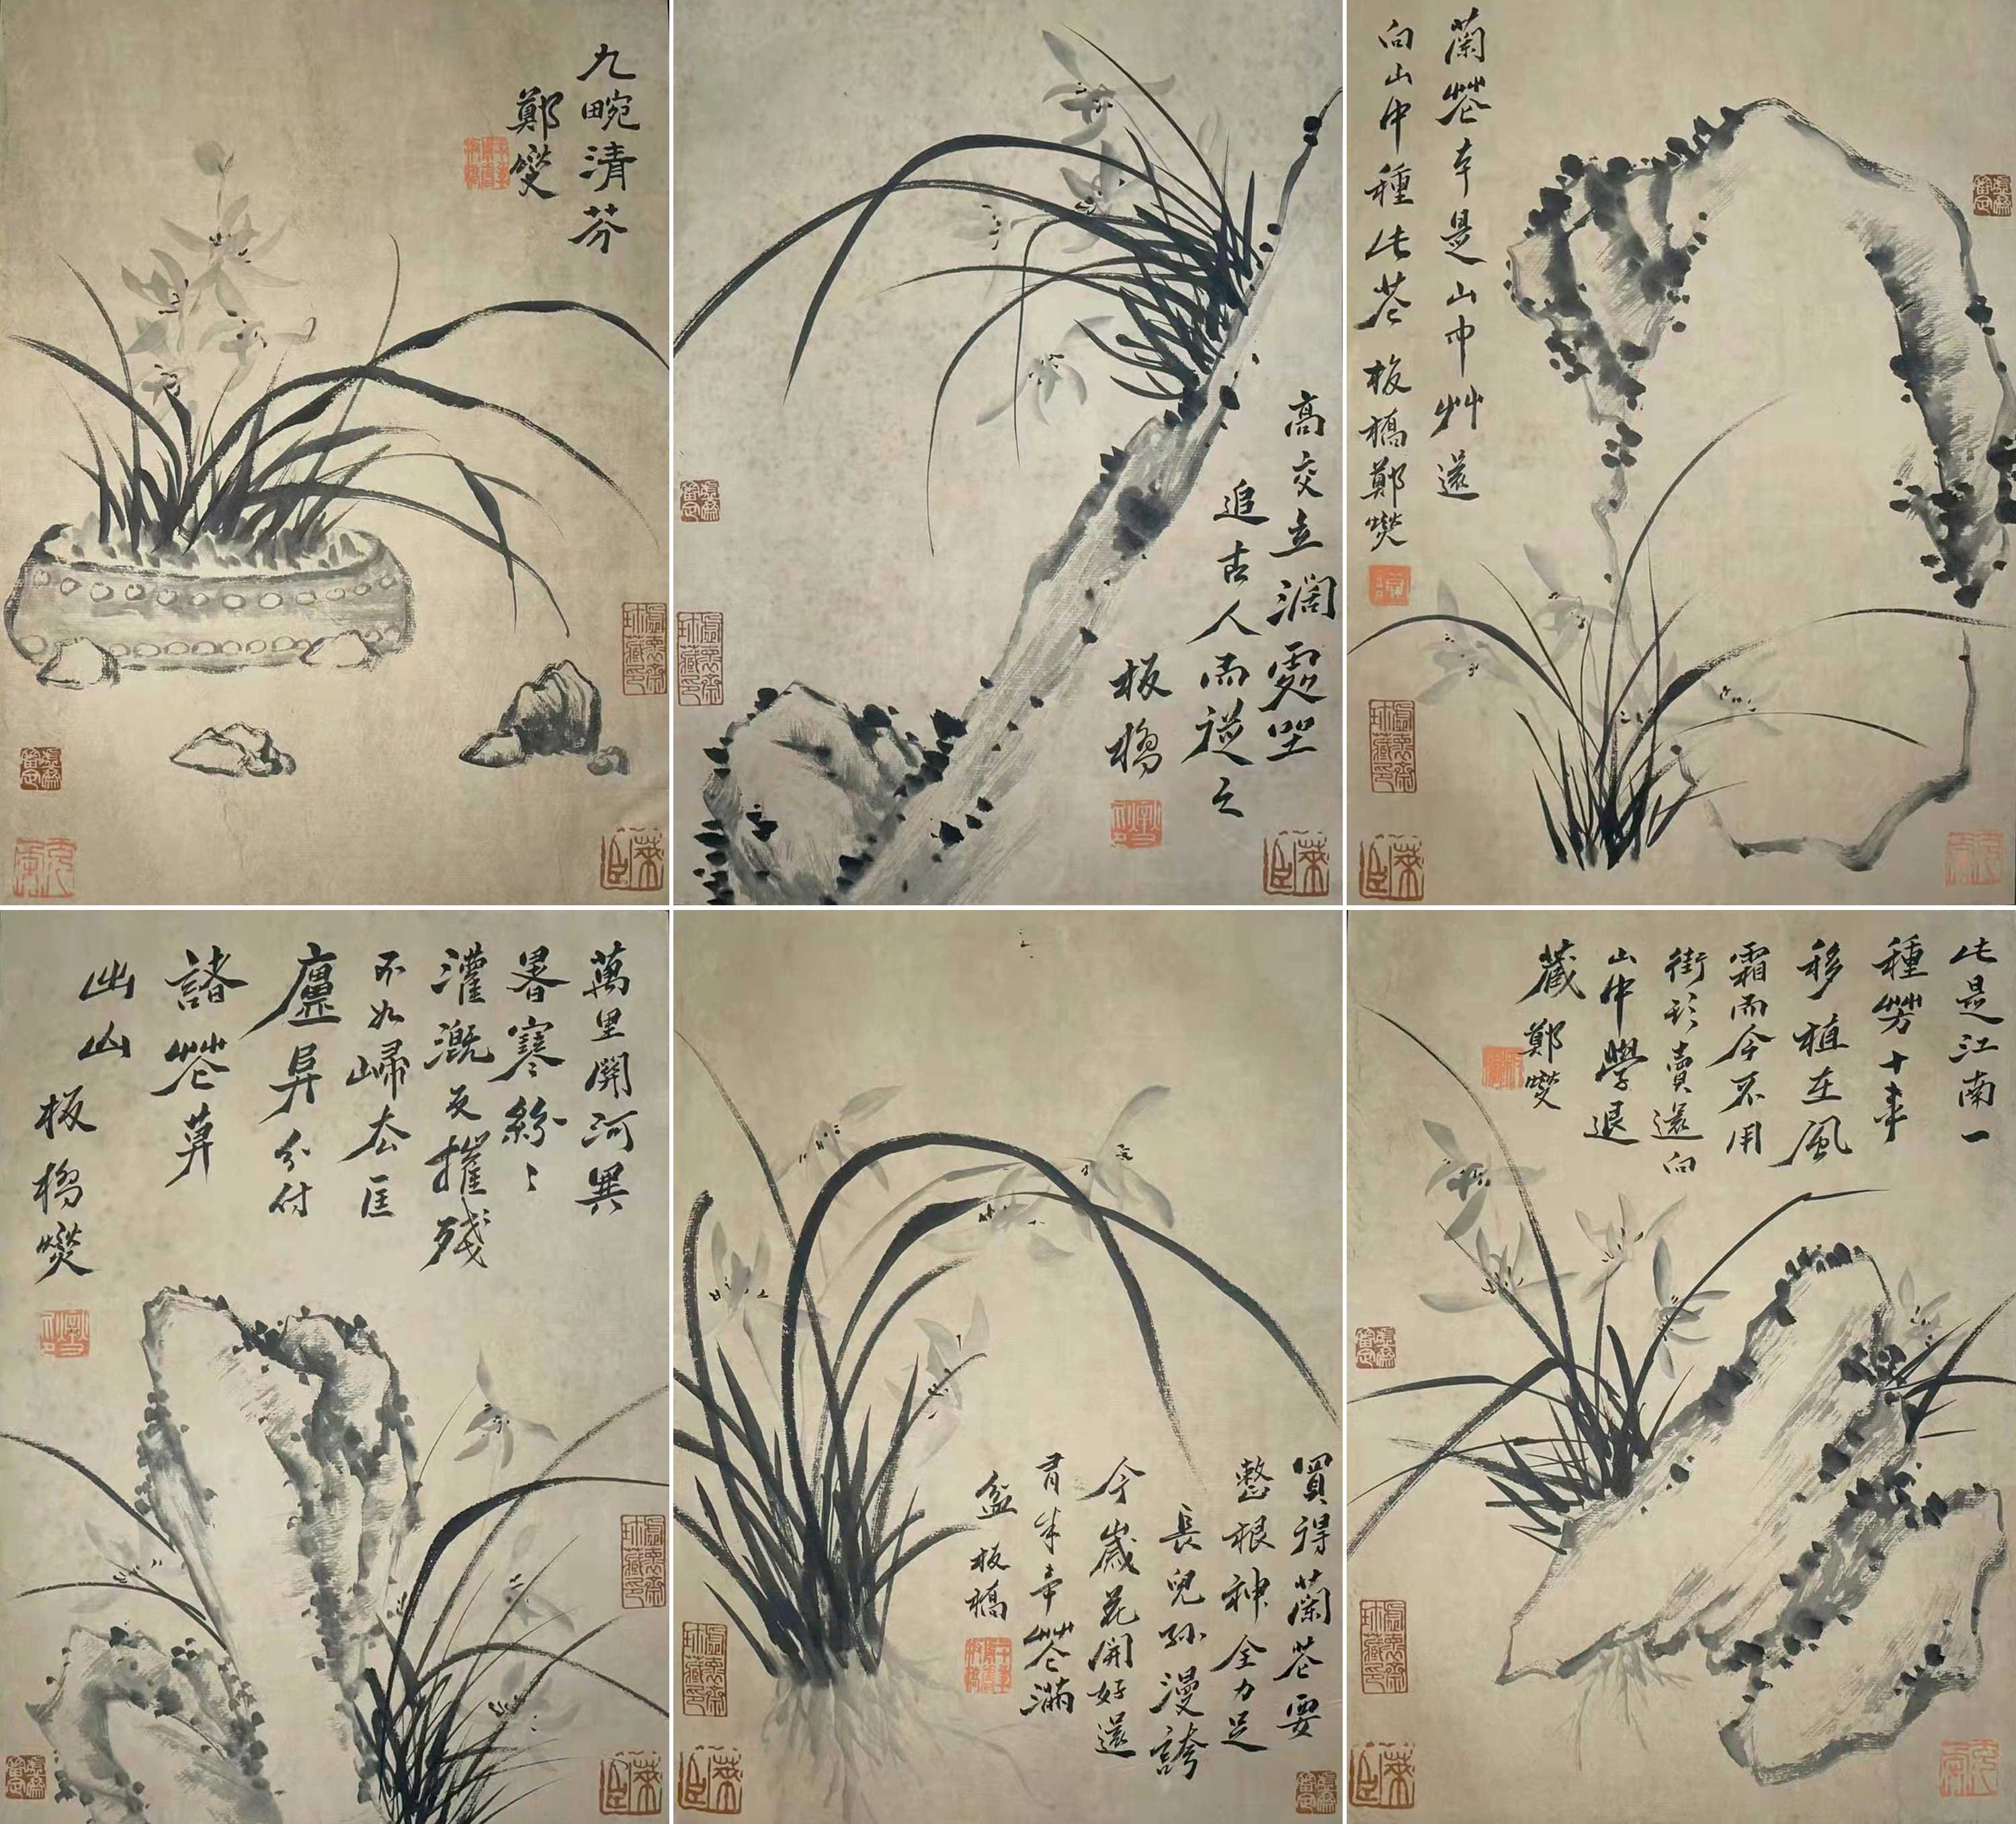 九畹清芬
鄭燮
高交立濶處坐
追古人而從之
板橋
蘭花本是山中艸還
向山中種此花 板橋鄭燮
萬里關河異
暑寒紛〻
灌溉反摧殘
不如歸去匡
廬
分付
諸花莫
出山
板橋燮
買得蘭花要
整根神全力足
長兒孫漫誇
今歲花開好還
有來年花滿
盆 板橋
此是江南一
種芳十年
移植在風
霜而今不用
街頭賣還向
山中學退
藏 鄭燮